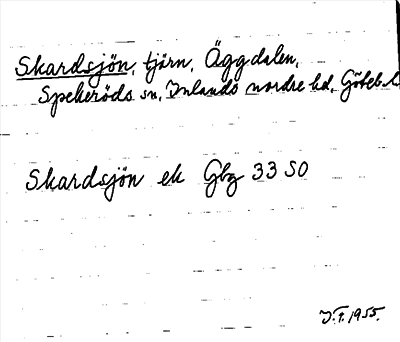 Skardsjön, tjärn, Äggdalen,
Spekeröds sn, Inlands nordre hd, Göteb. l.
Skardsjön ek Gbg 33 SO
J.T. 1955.